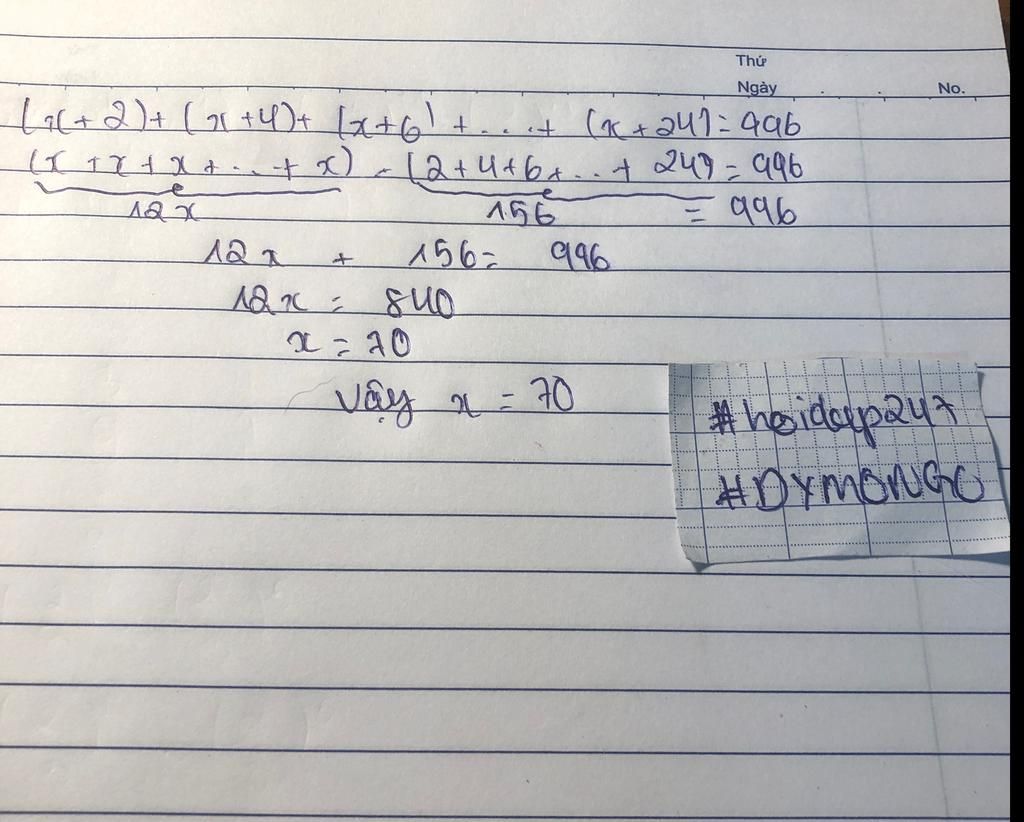 Thứ
Ngày . . No.
(x+2)+(x+4)+(x+6)+...+(x+24)=996
(x+x+x+...+x)-(2+4+6+...+24)=996
12x 156 = 996
12x + 156= 996
12x = 840
x = 70
Vậy x = 70
#hoidap247
#DYMONGO